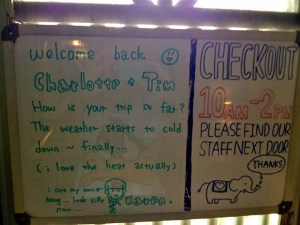 welcome back
Charlotte + Tim
How is your trip so far?
The weather starts to cold
down ~ finally...
( i love the heat actually )
i cut my
bang... look silly
now...
CHECKOUT
10AM-2PM
PLEASE FIND OUR
STAFF NEXT DOOR
THANKS